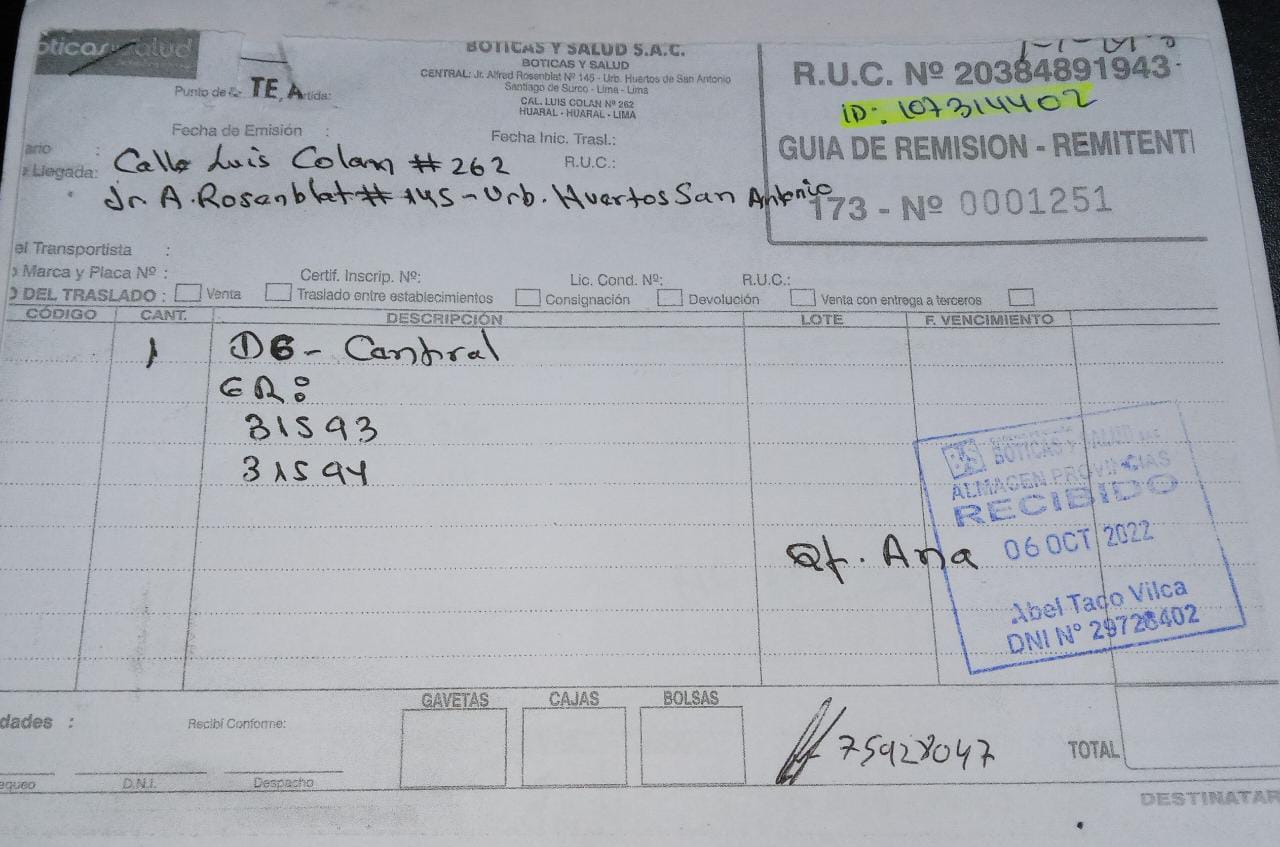 BOTICAS Y SALUD S.A.C.
BOTICAS Y SALUD
CENTRAL: Jr. Alfred Rosenblat Nº 145 - Urb. Huertos de San Antonio
Santiago de Surco - Lima - Lima
CAL. LUIS COLAN Nº 262
HUARAL - HUARAL - LIMA
R.U.C. Nº 20384891943
ID: 107314402
GUIA DE REMISION - REMITENT
173 - Nº 0001251
Punto de
TE, A
artida:
Fecha de Emisión :
Fecha Inic. Trasl.:
ario :
Llegada: Calle Luis Colan # 262
R.U.C.:
Jr. A. Rosenblat # 145 - Urb. Huertos San Antonio
el Transportista :
Marca y Placa Nº :
Certif. Inscrip. Nº:
Lic. Cond. Nº:
R.U.C.:
DEL TRASLADO : Venta Traslado entre establecimientos Consignación Devolución Venta con entrega a terceros
CÓDIGO CANT. DESCRIPCIÓN LOTE F. VENCIMIENTO
1 D6 - Central
GR:
31593
31594
BS BOTICAS Y SALUD SAC
ALMACEN PROVINCIAS
RECIBIDO
06 OCT 2022
Abel Taco Vilca
DNI Nº 29728402
Qf. Ana
dades :
Recibí Conforme:
GAVETAS CAJAS BOLSAS
75928047
TOTAL
equeo D.N.I. Despacho
DESTINATAR